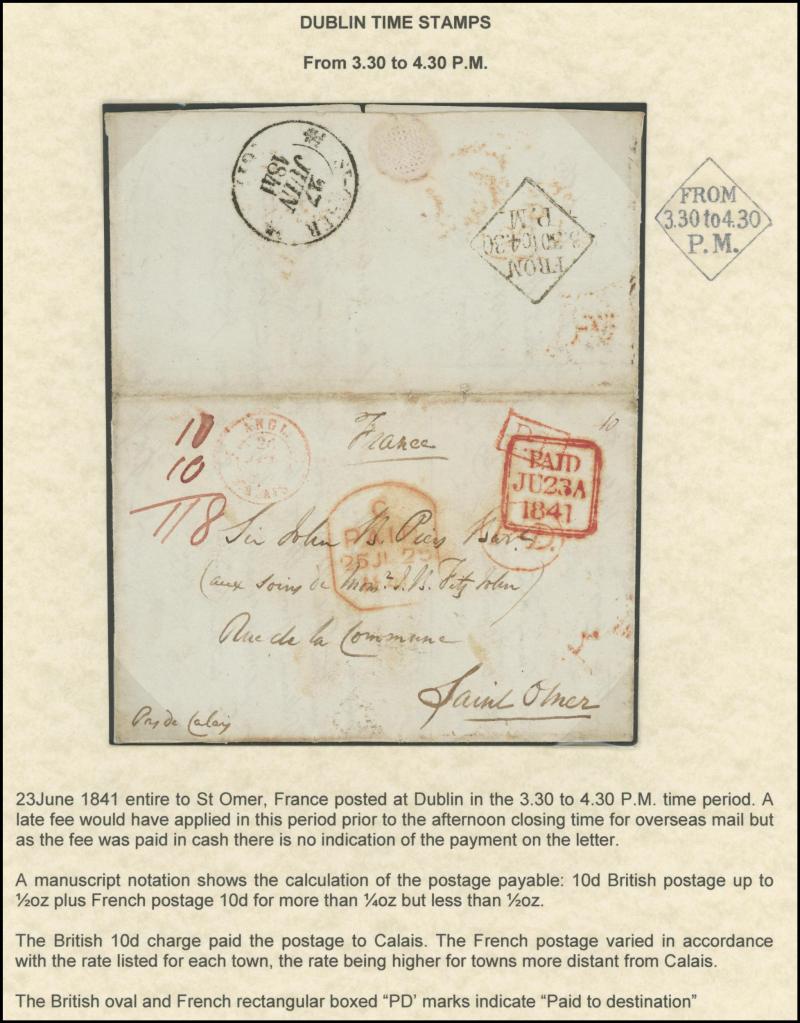 DUBLIN TIME STAMPS
From 3.30 to 4.30 P.M.
27
JUIN
1841
FROM
3.30 to 4.30
P.M.
FROM
3.30 to 4.30
P.M.
10
10
1/18
ANGL.
France
10
PAID
JU23A
1841
C
PAID
25JU25
Sir John B. Piers Bart
(aux soins de Monr. J. B. Fitz John)
Rue de la Commune
Saint Omer
Pas de Calais
23June 1841 entire to St Omer, France posted at Dublin in the 3.30 to 4.30 P.M. time period. A
late fee would have applied in this period prior to the afternoon closing time for overseas mail but
as the fee was paid in cash there is no indication of the payment on the letter.
A manuscript notation shows the calculation of the postage payable: 10d British postage up to
½oz plus French postage 10d for more than ¼oz but less than ½oz.
The British 10d charge paid the postage to Calais. The French postage varied in accordance
with the rate listed for each town, the rate being higher for towns more distant from Calais.
The British oval and French rectangular boxed “PD’ marks indicate “Paid to destination”